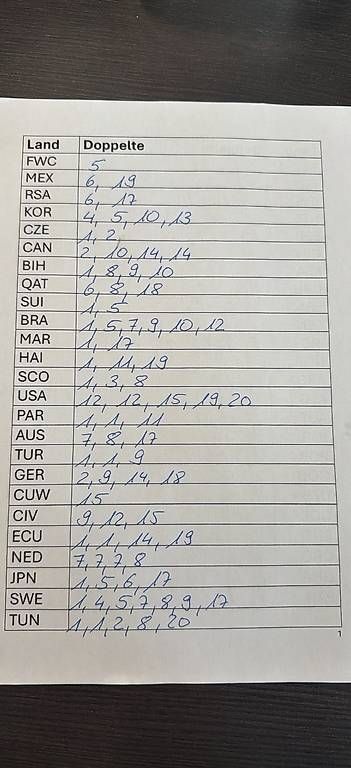 Land Doppelte
FWC 5
MEX 6, 19
RSA 6, 17
KOR 4, 5, 10, 13
CZE 1, 2
CAN 2, 10, 14, 14
BIH 1, 8, 9, 10
QAT 6, 8, 18
SUI 1, 5
BRA 1, 5, 7, 9, 10, 12
MAR 1, 17
HAI 1, 11, 19
SCO 1, 3, 8
USA 12, 12, 15, 19, 20
PAR 1, 1, 11
AUS 7, 8, 17
TUR 1, 1, 9
GER 2, 9, 14, 18
CUW 15
CIV 9, 12, 15
ECU 1, 1, 14, 19
NED 7, 7, 7, 8
JPN 1, 5, 6, 17
SWE 1, 4, 5, 7, 8, 9, 17
TUN 1, 1, 2, 8, 20
1